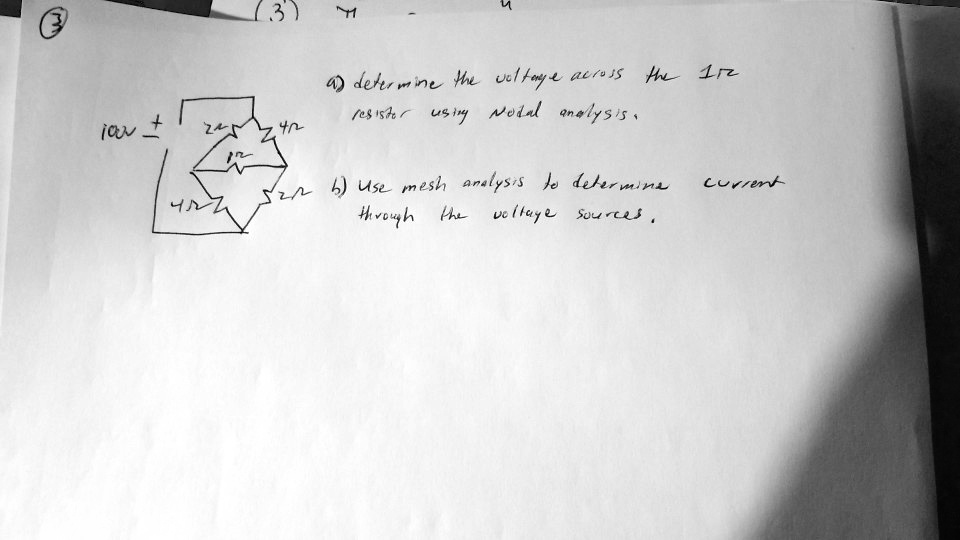 3
(3)
a) determine the voltage across the 1Ω
resistor using Nodal analysis.
100V ±
2Ω
4Ω
1Ω
4Ω
2Ω
b) Use mesh analysis to determine current
through the voltage sources.